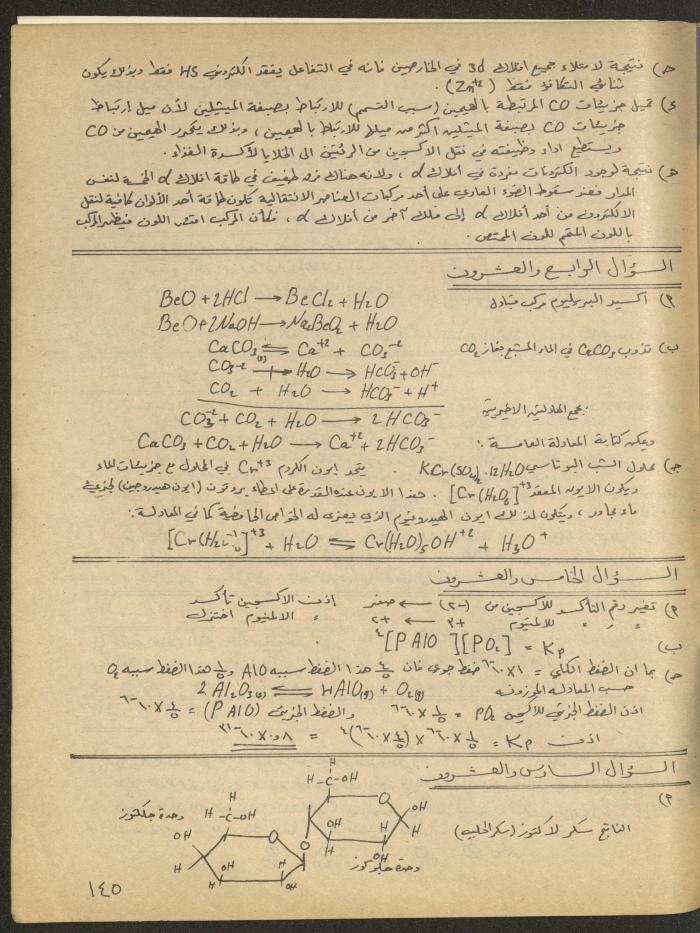 ج) نتيجة لامتلاء جميع افلاك 3d في الخارصين فانه في التفاعل يفقد الكتروني 4S فقط وبذلك يكون
ثنائي التكافؤ فقط (Zn+2) .
د) تميل جزيئات CO المرتبطة بالهيمين (سبب التسمم) للارتباط بصبغة الميثيلين لأن ميل إرتباط
جزيئات CO بصبغة الميثيلين أكثر من ميلها للارتباط بالهيمين ، وبذلك يتحرر الهيمين من CO
ويستطيع اداء وظيفته في نقل الاكسجين من الرئتين الى الخلايا لأكسدة الغذاء .
هـ) نتيجة لوجود الكترونات مفردة في أفلاك d ، ولانه هناك فرق طفيف في طاقة افلاك d الخمسة لنفس
المدار فعند سقوط الضوء العادي على أحد مركبات العناصر الانتقالية تكون طاقة أحد الألوان كافية لنقل
الالكترون من أحد أفلاك d إلى فلك آخر من أفلاك d ، فكأن المركب امتص اللون فيظهر المركب
باللون المتمم للون الممتص .
السؤال الرابع والعشرون
أ) أكسيد البريليوم مركب متبادل
BeO + 2HCl → BeCl2 + H2O
BeO + 2NaOH → Na2BeO2 + H2O
ب) تذوب CaCO3 في الماء المشبع بغاز CO2
CaCO3(s) ⇌ Ca+2 + CO3-2
CO3-2 + H2O → HCO3- + OH-
CO2 + H2O → HCO3- + H+
بجمع المعادلتين الاخيرتين
CO3-2 + CO2 + H2O → 2HCO3-
ويمكن كتابة المعادلة العامة :
CaCO3 + CO2 + H2O → Ca+2 + 2HCO3-
جـ) محلول الشب البوتاسي KCr(SO4)2 . 12H2O . يتحد أيون الكروم Cr+3 في المحلول مع جزيئات الماء
ويكون الايون المعقد [Cr(H2O)6]+3 . هذا الايون عنده القدرة على إعطاء بروتون (ايون هيدروجين) لجزيئي
ماء مجاور ، ويتكون لذلك ايون الهيدرونيوم الذي يعزى له الخواص الحامضية كما في المعادلة :
+ H2O ⇌ Cr(H2O)5OH+2 + H3O+
السؤال الخامس والعشرون
أ) تغير رقم التأكسد للاكسجين من (-٢) ← صفر إذن الاكسجين تأكسد
" " " للالمنيوم +٣ ← +٢ " الالمنيوم اختزل
ب) Kp = [PO2] [P AlO]٤
جـ) بما ان الضغط الكلي = ١×١٠-٦ ضغط جوي فان ٤/٥ هذا الضغط سببه AlO و ١/٥ هذا الضغط سببه O2
حسب المعادلة الموزونة 2Al2O3(s) ⇌ 4AlO(g) + O2(g)
اذن الضغط الجزئي للاكسجين PO2 = ١/٥ × ١٠-٦ والضغط الجزئي (P AlO) = ٤/٥ × ١٠-٦
اذن Kp = ١/٥ × ١٠-٦ × (٤/٥ × ١٠-٦)٤
السؤال السادس والعشرون
أ)
الناتج سكر لاكتوز (سكر الحليب)
وحدة جلكتوز
وحدة جلوكوز
H
H-C-OH
O
OH
H
H
H-C-OH
O
OH
H
١٤٥